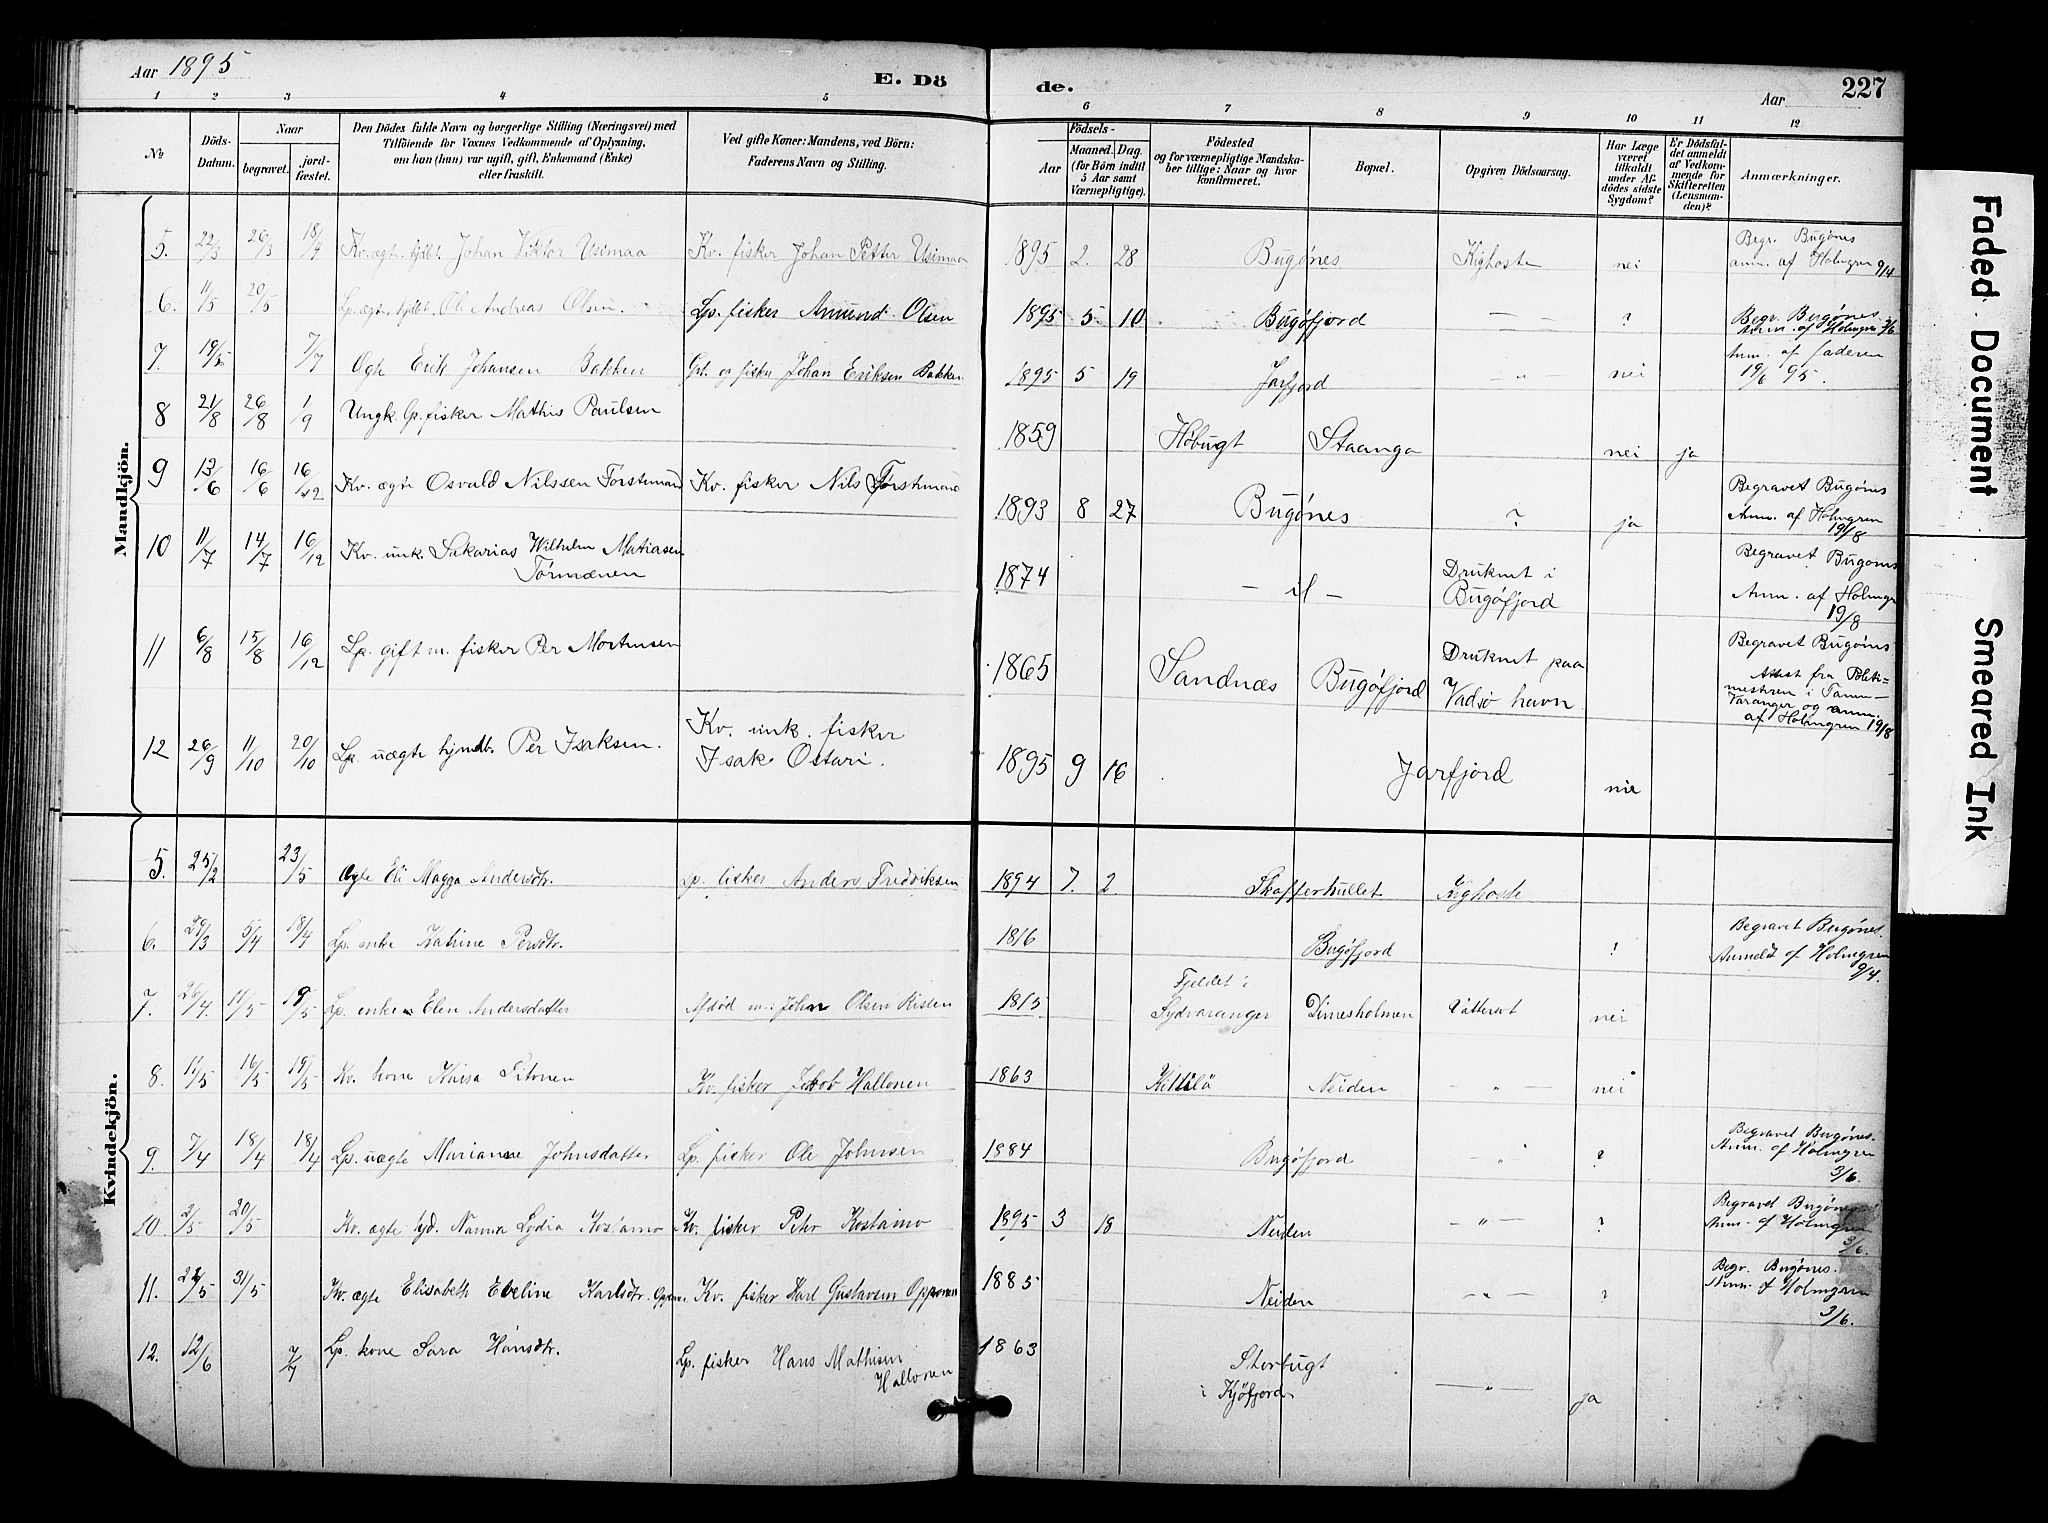 Aar 1895
E. Dö
de.
Aar
227
1 2 3 4 5 6 7 8 9 10 11 12
No
Döds-Datum.
Naar
begravet.
jord-fæstet.
Den Dödes fulde Navn og borgerlige Stilling (Næringsvei) med
Tilföiende for Voxnes Vedkommende af Oplysning,
om han (hun) var ugift, gift, Enkemand (Enke)
eller fraskilt.
Ved gifte Koner: Mandens, ved Börn:
Faderens Navn og Stilling.
Födsels-
Aar
Maaned. Dag.
(for Börn indtil
5 Aar samt
Værnepligtige).
Födested
og for værnepligtige Mandska-
ber tillige: Naar og hvor
konfirmeret.
Bopæl.
Opgiven Dödsaarsag.
Har Læge
været
tilkaldt
under Af-
dödes sidste
Sygdom?
Er Dödsfal-
det anmeldt
af Vedkom-
mende for
Skifteretten
(Lensman-
den)?
Anmærkninger.
Mandkjön.
5. 22/3 26/3 18/4 Kv. ægt. hjdbt. Johan Viktor Usimaa Kv. fisker Johan Petter Usimaa 1895 2. 28 Bugönes Kighoste nei Begr. Bugönes
anm. af Holmgren 9/4
6. 11/5 20/5 Lp. ægte hjdbt. Ole Andreas Olsen. Lp. fisker Amund Olsen 1895 5. 10 Bugöfjord — ? Begr. Bugönes
Anm. af Holmgren 3/6
7. 19/5 7/7 Ægte Erik Johansen Bakken Grt. og fisker Johan Eriksen Bakken 1895 5 19 Jarfjord — " — nei Anm. af faderen
19/6 95.
8 21/8 26/8 1/9 Ungk. Lp. fisker Mathis Paulsen 1859 Höbugt Staanga nei ja
9 13/6 16/6 16/12 Kv. ægte Osvald Nilssen Törstmand Kv. fisker Nils Törstmand 1893 8 27 Bugönes ? ja Begravet Bugönes
Anm. af Holmgren
19/8
10 11/7 14/7 16/12 Kv. unk. Sakarias Wilhelm Matiasen
Törmænen 1874 — il — Druknet i
Bugöfjord Begravet Bugönes
Anm. af Holmgr
19/8
11 6/8 15/8 16/12 Lp. gift m. fisker Per Mortensen 1865 Sandnæs Bugöfjord Druknet paa
Vadsö havn Begravet Bugönes
Attest fra Politi=
mesteren i Tanen—
Varanger og anm.
af Holmgren 19/8
12 26/9 11/10 20/10 Lp. uægte hjmdb. Per Isaksen. Kv. unk. fisker
Isak Ostari. 1895 9 16 Jarfjord nei
Kvindekjön.
5. 25/2 23/5 Ægte Eli Magga Andersdtr. Lp. fisker Anders Fredriksen 1894 7. 2 Skafferhullet Kighoste
6. 29/3 5/4 18/4 Lp. enke Katrine Persdtr. 1816 Bugöfjord ? Begravet Bugönes.
Anmeldt af Holmgren
9/4.
7. 26/4. 11/5 19/5 Lp. enke Elen Andersdatter Afdöd m.: John Olsen Risten 1815 Fjeldet i
Sydvaranger nei
8. 11/5 16/5 19/5 Kv. kone Kaisa Pitonen Kv. fisker Jakob Hallonen 1863 Kittilä Neiden — " — nei
9. 7/4 18/4 18/4 Lp. uægte Marianne Johnsdatter Lp. fisker Ole Johnsen 1884 Bugöfjord " ? Begravet Bugönes.
Anm. af Holmgren
3/6.
10. 2/5 20/5 Kv. ægte hjd. Nanna Lydia Kostamo Kv. fisker Peter Kostamo 1895 3 18 Neiden — " — ? Begravet Bugönes
Anm. af Holmgren
3/6.
11. 22/5 31/5 Kv. ægte Elisabeth Eveline Karlsdtr. Kv. fisker Karl Gustavsen Opponen 1885 Neiden — " — ? Begr. Bugönes.
Anm. af Holmgren
3/6.
12. 12/6 7/7 Lp. kone Sara Hansdtr. Lp. fisker Hans Mathisen
Hallonen 1863 Storbugt
i Kjöfjord — " — ja
Faded Document
Smeared Ink